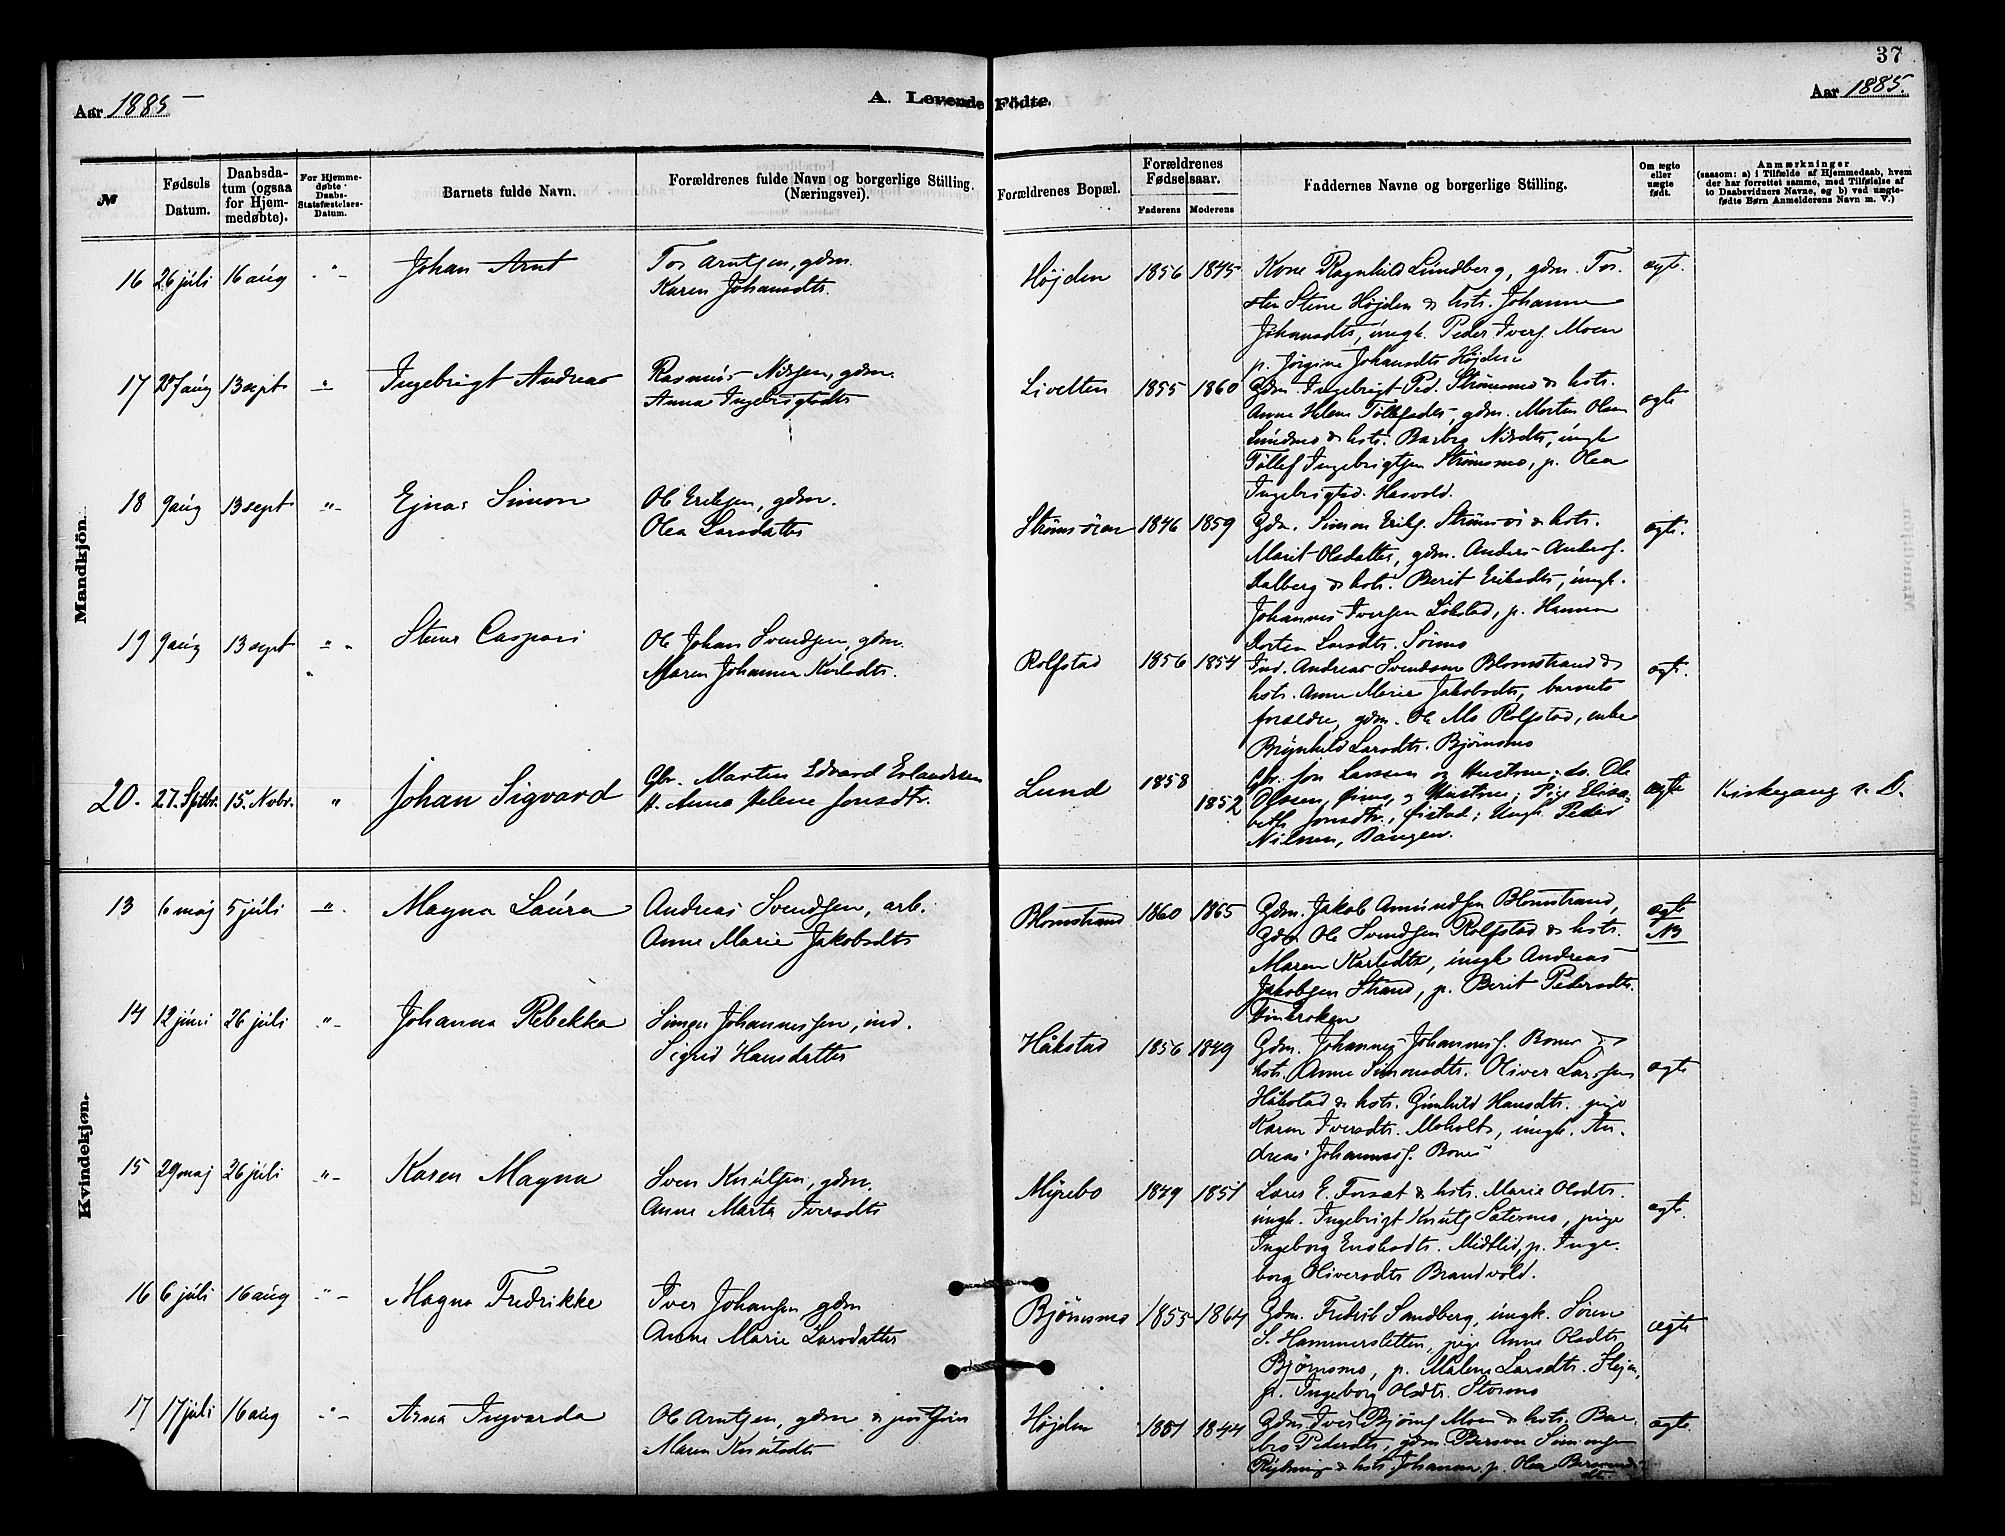 37
Aar 1885
A. Levende Födte.
Aar 1885.
№
Fødsels Datum.
Daabsdatum (ogsaa for Hjemmedøbte).
For Hjemmedøbte Daabs-Statsfæstelses-Datum.
Barnets fulde Navn.
Forældrenes fulde Navn og borgerlige Stilling. (Næringsvei).
Forældrenes Bopæl.
Forældrenes Fødselsaar.
Faderens
Moderens
Faddernes Navne og borgerlige Stilling.
Om ægte eller uægte født.
Anmærkninger
(saasom: a) i Tilfælde af Hjemmedaab, hvem der har forrettet samme, med Tilføielse af to Daabsvidners Navne, og b) ved uægtefødte Børn Anmelderens Navn m. V.)
Mandkjön.
16 26 júli 16 aúg Johan Arnt
Tor Arntsen, gdm.
Karen Johansdtr.
Højden 1856 1845
Kone Ragnhild Lúndberg, gdm. Tor-
sten Steine Højden & hstr. Johanna
Johansdtr, úngk. Peder Ivers. Moen
p. Jørgine Johansdtr Højden
ægte.
17 20 aúg 13 sept Ingebrigt Andreas
Rasmús Nilsen, gdm.
Anna Ingebrigtsdtr
Livelten 1855 1860
Gdm. Ingebrigt Ped. Strømsmo & hstr.
Anne Helene Tollefsdtr, gdm. Morten Olsen
Lúndmo & hstr. Barbro Nilsdtr, úngk
Tollef Ingebrigtsen Strømsmo, p. Olea
Ingebrigtsd. Hasvold.
ægte
18 9 aúg 13 sept Ejnar Simon
Ole Eriksen, gdm.
Olea Larsdatter
Strømsöien 1846 1859
Gdm. Simon Eriks. Strømsöi & hstr.
Marit Olsdatter, gdm. Anders Anders.
Dalberg & hstr. Berit Eriksdtr, úngk.
Johannes Iversen Løkstad, p. Hanna
Dorten Larsdtr. Sörmo
ægte.
19 9 aúg 13 sept Stener Caspari
Ole Johan Svendsen, gdm.
Maren Johanna Karlsdtr.
Rolfstad 1856 1854
Ind. Andreas Svendsen Blomstrand &
hstr. Anne Marie Jakobsdtr, barnets
forældre, gdm. Ole Mo Rolfstad, enke
Brynhild Larsdtr. Björnsmo
ægte.
20. 27. Septbr. 15. Novbr. Johan Sigvard
Gbr. Martin Edvard Erlandsen
H. Anna Helene Jonsdtr.
Lund 1858 1852
Gbr. Jon Larssen og Hustru; do. Ole
Olssen, Øimo, og Hustru; Pige Elisa-
beth Jonsdtr., Øistad; Ungk. Peder
Nilssen, Bangen.
ægte
Kirkegang s. D.
Kvindekjøn.
13 6 maj 5 júli Magna Laúra
Andreas Svendsen, arb.
Anne Marie Jakobsdtr
Blomstrand 1860 1865
Gdm. Jakob Amúndsen Blomstrand,
Gdm Ole Svendsen Rolfstad & hstr.
Maren Karlsdtr, úngk Andreas
Jakobsen Strand, p. Berit Pedersdtr.
Finkroken
ægte
NB
14 12 júni 26 júli Johanna Rebekka
Simon Johannessen, ind.
Sigrid Hansdatter
Håkstad 1856 1849
Gdm. Johannes Johanness. Bones &
hstr. Anne Simonsdtr. Oliver Larssen
Håkstad & hstr. Gúnhild Hansdtr. pige
Karen Iversdtr. Moholt, úngk. An-
dreas Johanness. Bones
ægte
15 29 maj 26 júli Karen Magna
Sven Knútsen, gdm.
Anne Marta Iversdtr
Myrebo 1849 1851
Lars E. Forsæt & hstr. Marie Olsdtr.
úngk. Ingebrigt Knúts Sætermo, pige
Ingeborg Enokdtr. Midtlid, p. Inge-
borg Oliversdtr Brandvold.
ægte.
16 6 júli 16 aúg Magna Fredrikke
Iver Johansen gdm
Anne Marie Larsdatter
Björnsmo 1855 1864
Gdm. Fredrik Sandberg, úngk. Sören
S. Hammersletten, pige Anne Olsdtr
Björnsmo, p. Malene Larsdtr.
p. Ingeborg Olsdtr. Stormo
ægte
17 17 júli 16 aúg Arna Ingvarda
Ole Arntsen, gdm
Maren Knútsdtr
Højden 1851 1844
Gdm. Iver Björns Moen & hstr. Bar-
bro Pedersdtr, gdm. Bersven Simonsen
& hstr. Johanna, p. Olea Bersvends-
dtr
ægte.